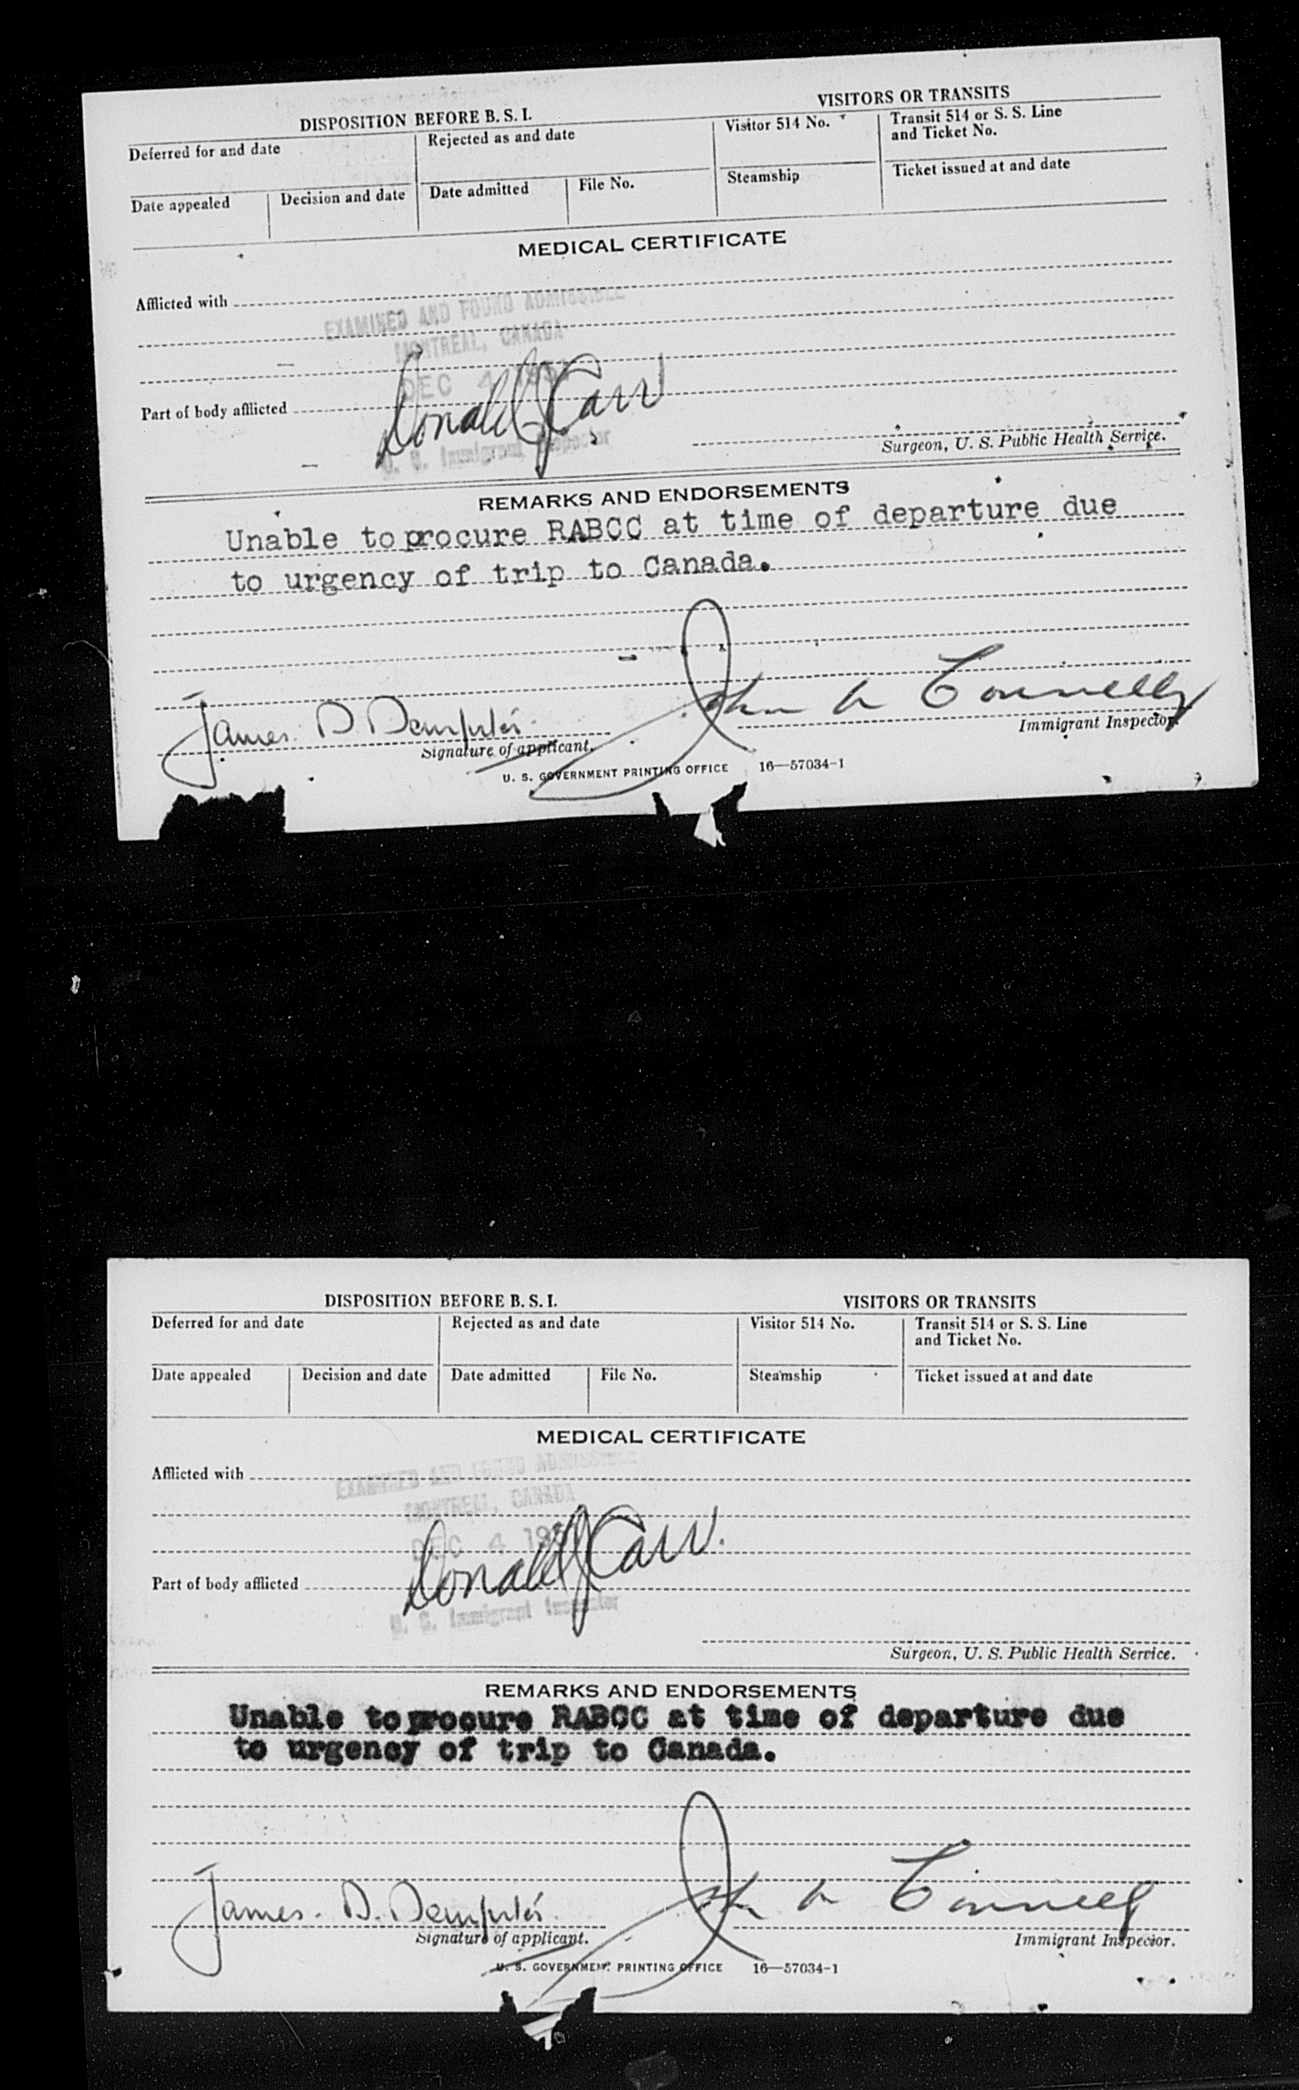 DISPOSITION BEFORE B. S. I.
VISITORS OR TRANSITS
Deferred for and date
Rejected as and date
Visitor 514 No.
Transit 514 or S. S. Line
and Ticket No.
Date appealed
Decision and date
Date admitted
File No.
Steamship
Ticket issued at and date
MEDICAL CERTIFICATE
Afflicted with
EXAMINED AND FOUND ADMISSIBLE
MONTREAL, CANADA
DEC 4
Donald J Carr
Part of body afflicted
U. S. Immigrant Inspector
Surgeon, U. S. Public Health Service.
REMARKS AND ENDORSEMENTS
Unable to procure RABCC at time of departure due
to urgency of trip to Canada.
James. D Dempster.
John A Connelly
Signature of applicant.
Immigrant Inspector.
U. S. GOVERNMENT PRINTING OFFICE 16—57034-1
DISPOSITION BEFORE B. S. I.
VISITORS OR TRANSITS
Deferred for and date
Rejected as and date
Visitor 514 No.
Transit 514 or S. S. Line
and Ticket No.
Date appealed
Decision and date
Date admitted
File No.
Steamship
Ticket issued at and date
MEDICAL CERTIFICATE
Afflicted with
EXAMINED AND FOUND ADMISSIBLE
MONTREAL, CANADA
DEC 4
Donald J Carr.
Part of body afflicted
U. S. Immigrant Inspector
Surgeon, U. S. Public Health Service.
REMARKS AND ENDORSEMENTS
Unable to procure RABCC at time of departure due
to urgency of trip to Canada.
James. D. Dempster.
John A Connelly
Signature of applicant.
Immigrant Inspector.
U. S. GOVERNMENT PRINTING OFFICE 16—57034-1